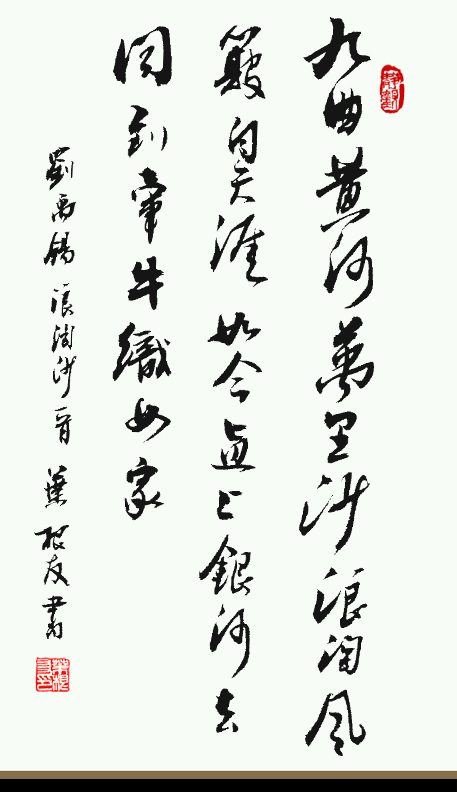 九曲黄河萬里沙浪淘風
簸自天涯如今直上銀河去
同到牽牛織女家
劉禹錫浪淘沙一首 葉根友書